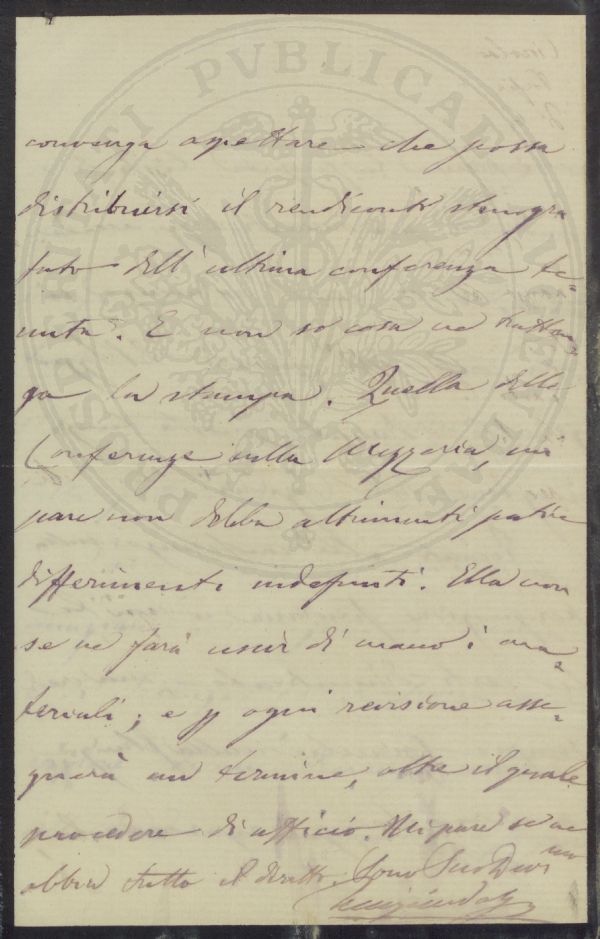 convenga aspettare che possa
distribuirsi il rendiconto stenogra
fato dell'ultima conferenza te-
nuta. E non so cosa ne tratten-
ga la stampa. Quella delle
Conferenze sulla Mezzeria, mi
pare non debba altrimenti patire
differimenti indefiniti. Ella non
se ne farà uscir di mano i ma-
teriali; e p ogni revisione asse-
gnerà un termine, oltre il quale
procedere di ufficio. Mi pare se ne
abbia tutto il diritto. Sono Suo Dev mo